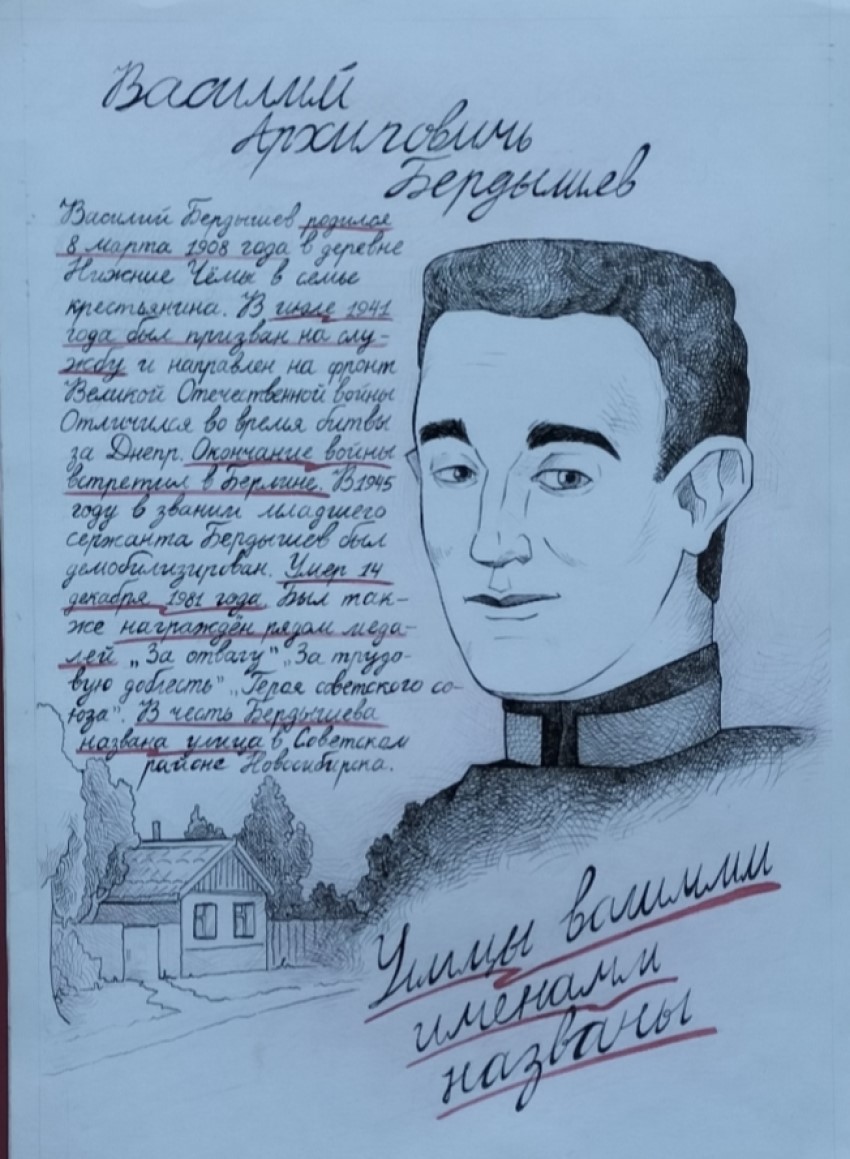 Василий
Архипович
Бердышев
Василий Бердышев родился
8 марта 1908 года в деревне
Нижние Чёмы в семье
крестьянина. В июле 1941
года был призван на слу-
жбу и направлен на фронт
Великой Отечественной войны
Отличился во время битвы
за Днепр. Окончание войны
встретил в Берлине. В 1945
году в звании младшего
сержанта Бердышев был
демобилизирован. Умер 14
декабря 1981 года. Был так-
же награждён рядом меда-
лей „За отвагу" „За трудо-
вую доблесть" „Героя советского со-
юза". В честь Бердышева
названа улица в Советском
районе Новосибирска.
Улицы вашими
именами
названы